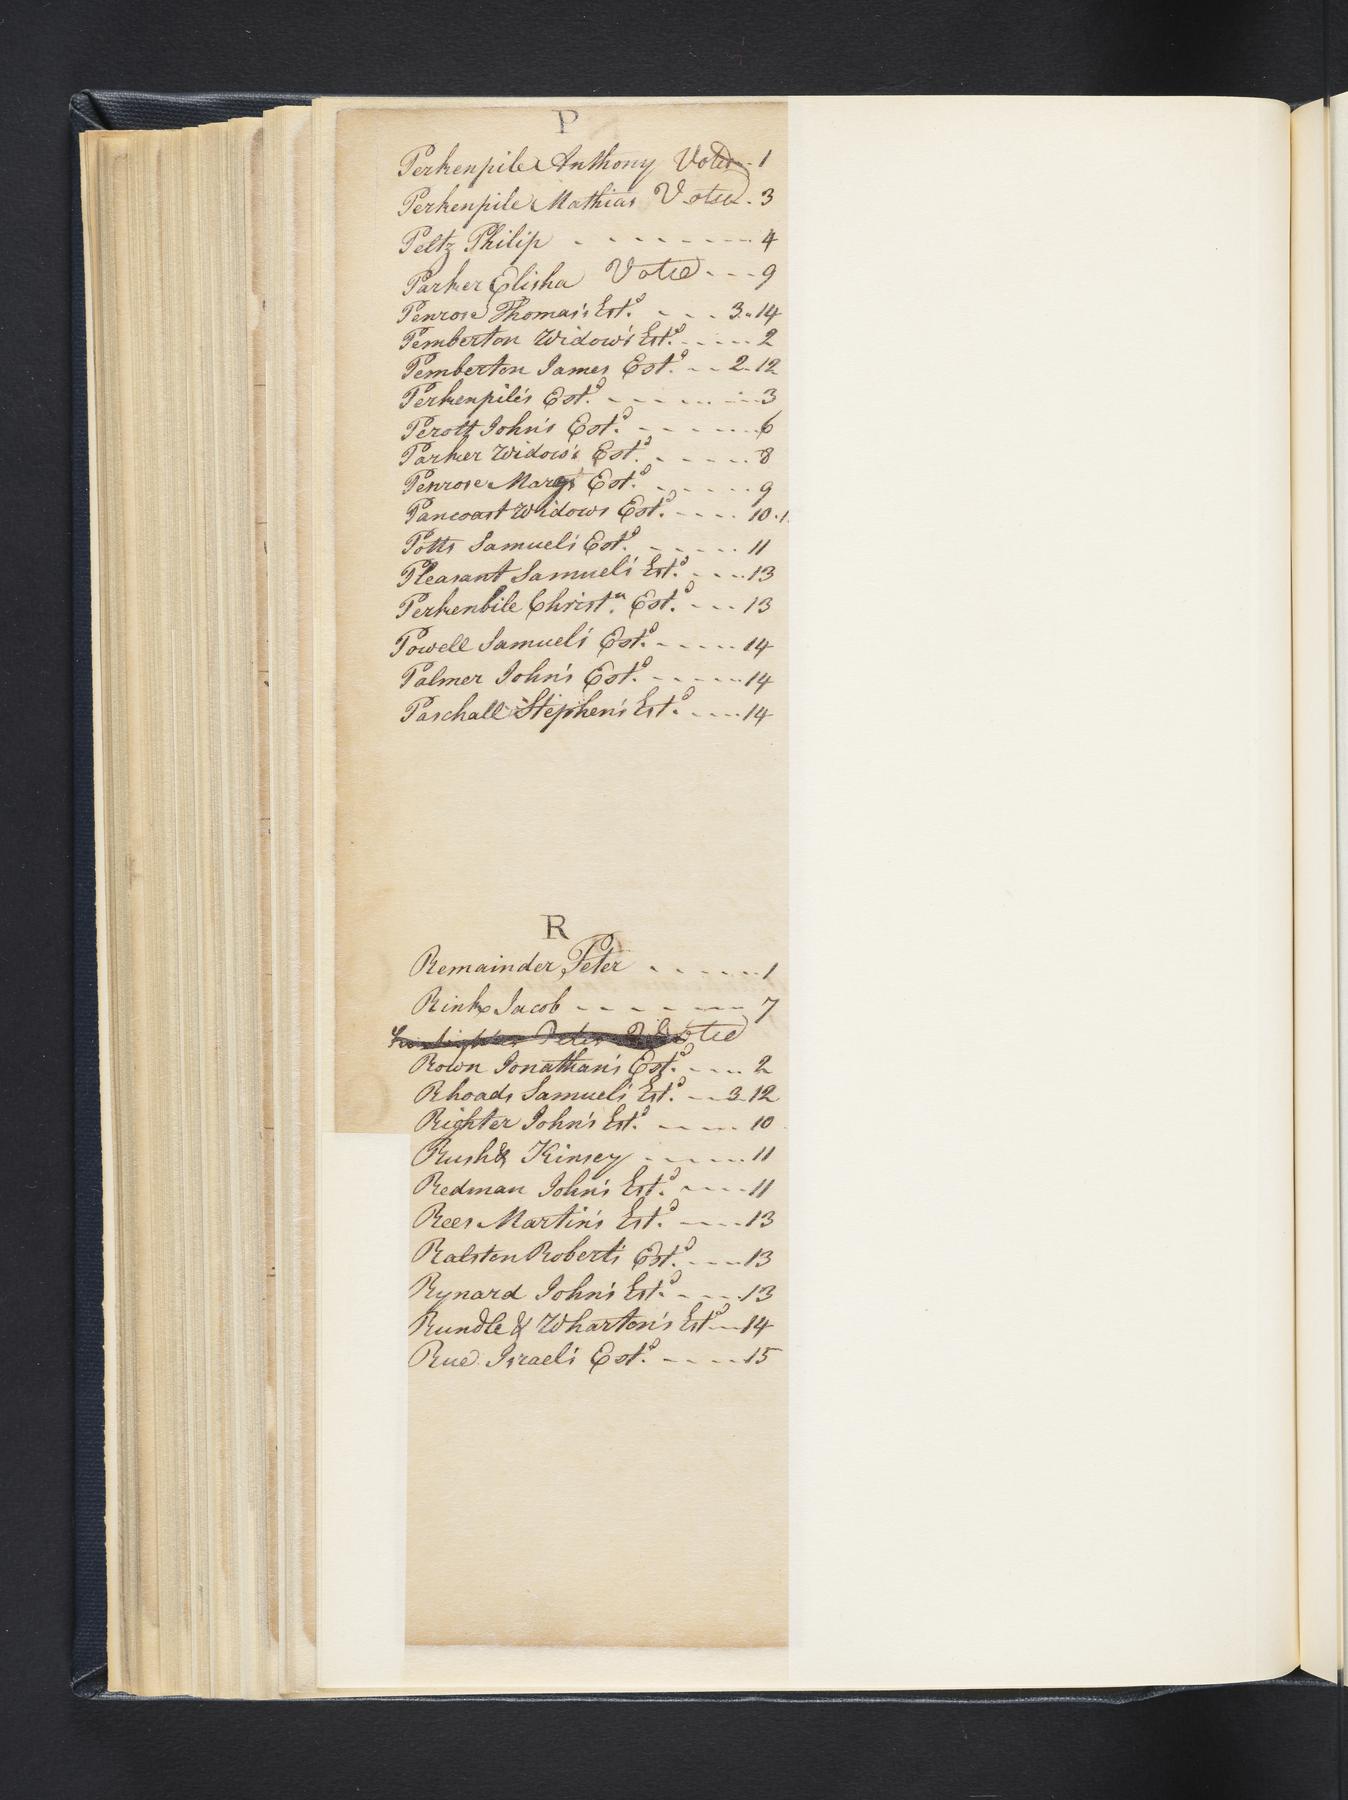 P
Perkenpile Anthony Voted - 1
Perkenpile Mathias Voted - 3
Peltz Philip - - - - - - - - 4
Parker Elisha Voted - - - 9
Penrose Thomas's Est.d - - - 3 - 14
Pemberton Widow's Est.d - - - - - 2
Pemberton James Est.d - - 2 - 12
Perkenpile's Est.d - - - - - - - 3
Perott John's Est.d - - - - - - 6
Parker Widow's Est.d - - - - - 8
Penrose Mary's Est.d - - - - - 9
Pancoast Widows Est.d - - - - 10 - 1
Potts Samuel's Est.d - - - - - 11
Pleasant Samuel's Est.d - - - - 13
Perkenbile Christ.n Est.d - - - 13
Powell Samuel's Est.d - - - - - 14
Palmer John's Est.d - - - - - 14
Paschall Stephen's Est.d - - - - 14
R
Remainder Peter - - - - - - 1
Rink Jacob - - - - - - - 7
Peter Voted
Rown Jonathan's Est.d - - - - 2
Rhoads Samuel's Est.d - - 3 - 12
Righter John's Est.d - - - - - 10
Rush & Kinsey - - - - - - 11
Redman John's Est.d - - - - 11
Rees Martin's Est.d - - - - 13
Ralston Robert's Est.d - - - - 13
Rynard John's Est.d - - - - 13
Rundle & Wharton's Est.d - - 14
Rue Israel's Est.d - - - - - 15